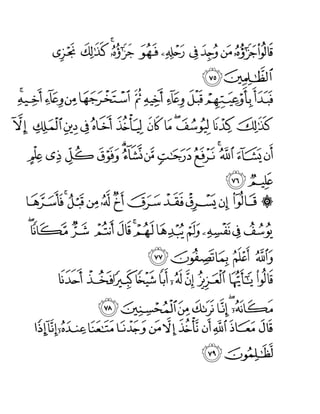 قَالُوا۟ جَزَٰٓؤُهُۥ مَن وُجِدَ فِى رَحْلِهِۦ فَهُوَ جَزَٰٓؤُهُۥ ۚ كَذَٰلِكَ نَجْزِى
ٱلظَّٰلِمِينَ ٧٥
فَبَدَأَ بِأَوْعِيَتِهِمْ قَبْلَ وِعَآءِ أَخِيهِ ثُمَّ ٱسْتَخْرَجَهَا مِن وِعَآءِ أَخِيهِ ۚ
كَذَٰلِكَ كِدْنَا لِيُوسُفَ ۖ مَا كَانَ لِيَأْخُذَ أَخَاهُ فِى دِينِ ٱلْمَلِكِ إِلَّآ
أَن يَشَآءَ ٱللَّهُ ۚ نَرْفَعُ دَرَجَٰتٍ مَّن نَّشَآءُ ۗ وَفَوْقَ كُلِّ ذِى عِلْمٍ
عَلِيمٌ ٧٦
۞ قَالُوٓا۟ إِن يَسْرِقْ فَقَدْ سَرَقَ أَخٌ لَّهُۥ مِن قَبْلُ ۚ فَأَسَرَّهَا
يُوسُفُ فِى نَفْسِهِۦ وَلَمْ يُبْدِهَا لَهُمْ ۚ قَالَ أَنتُمْ شَرٌّ مَّكَانًا ۖ
وَٱللَّهُ أَعْلَمُ بِمَا تَصِفُونَ ٧٧
قَالُوا۟ يَٰٓأَيُّهَا ٱلْعَزِيزُ إِنَّ لَهُۥٓ أَبًا شَيْخًا كَبِيرًا فَخُذْ أَحَدَنَا
مَكَانَهُۥٓ ۖ إِنَّا نَرَىٰكَ مِنَ ٱلْمُحْسِنِينَ ٧٨
قَالَ مَعَاذَ ٱللَّهِ أَن نَّأْخُذَ إِلَّا مَن وَجَدْنَا مَتَٰعَنَا عِندَهُۥٓ إِنَّآ إِذًا
لَّظَٰلِمُونَ ٧٩